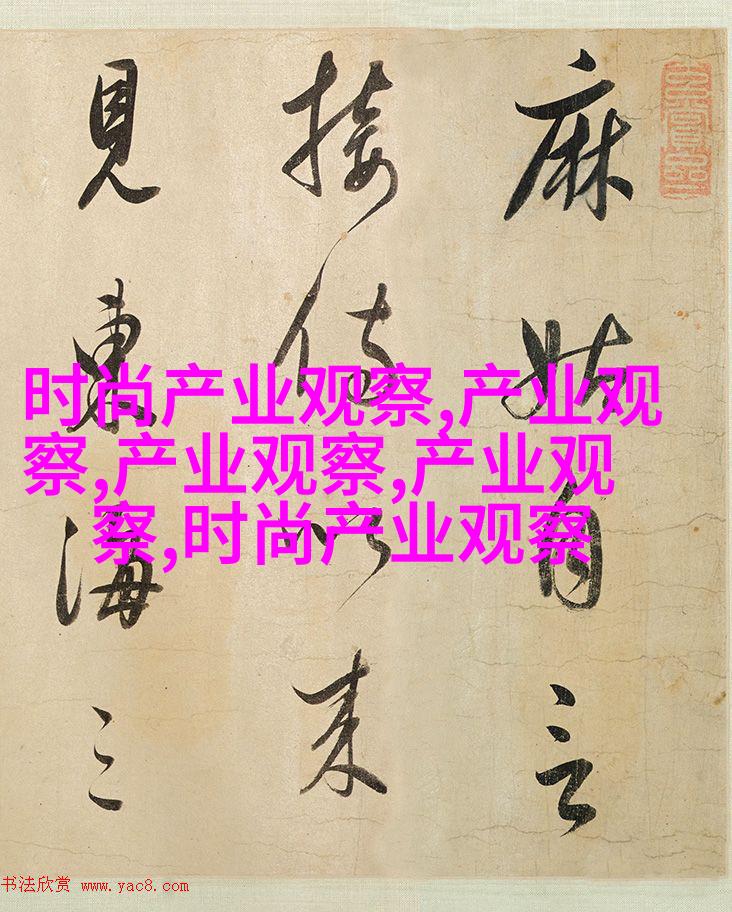 麻姑自言
接侍以来
見東海三
时尚产业观察,产业观
察,产业观察,产业观
察,时尚产业观察
书法欣赏 www.yac8.com